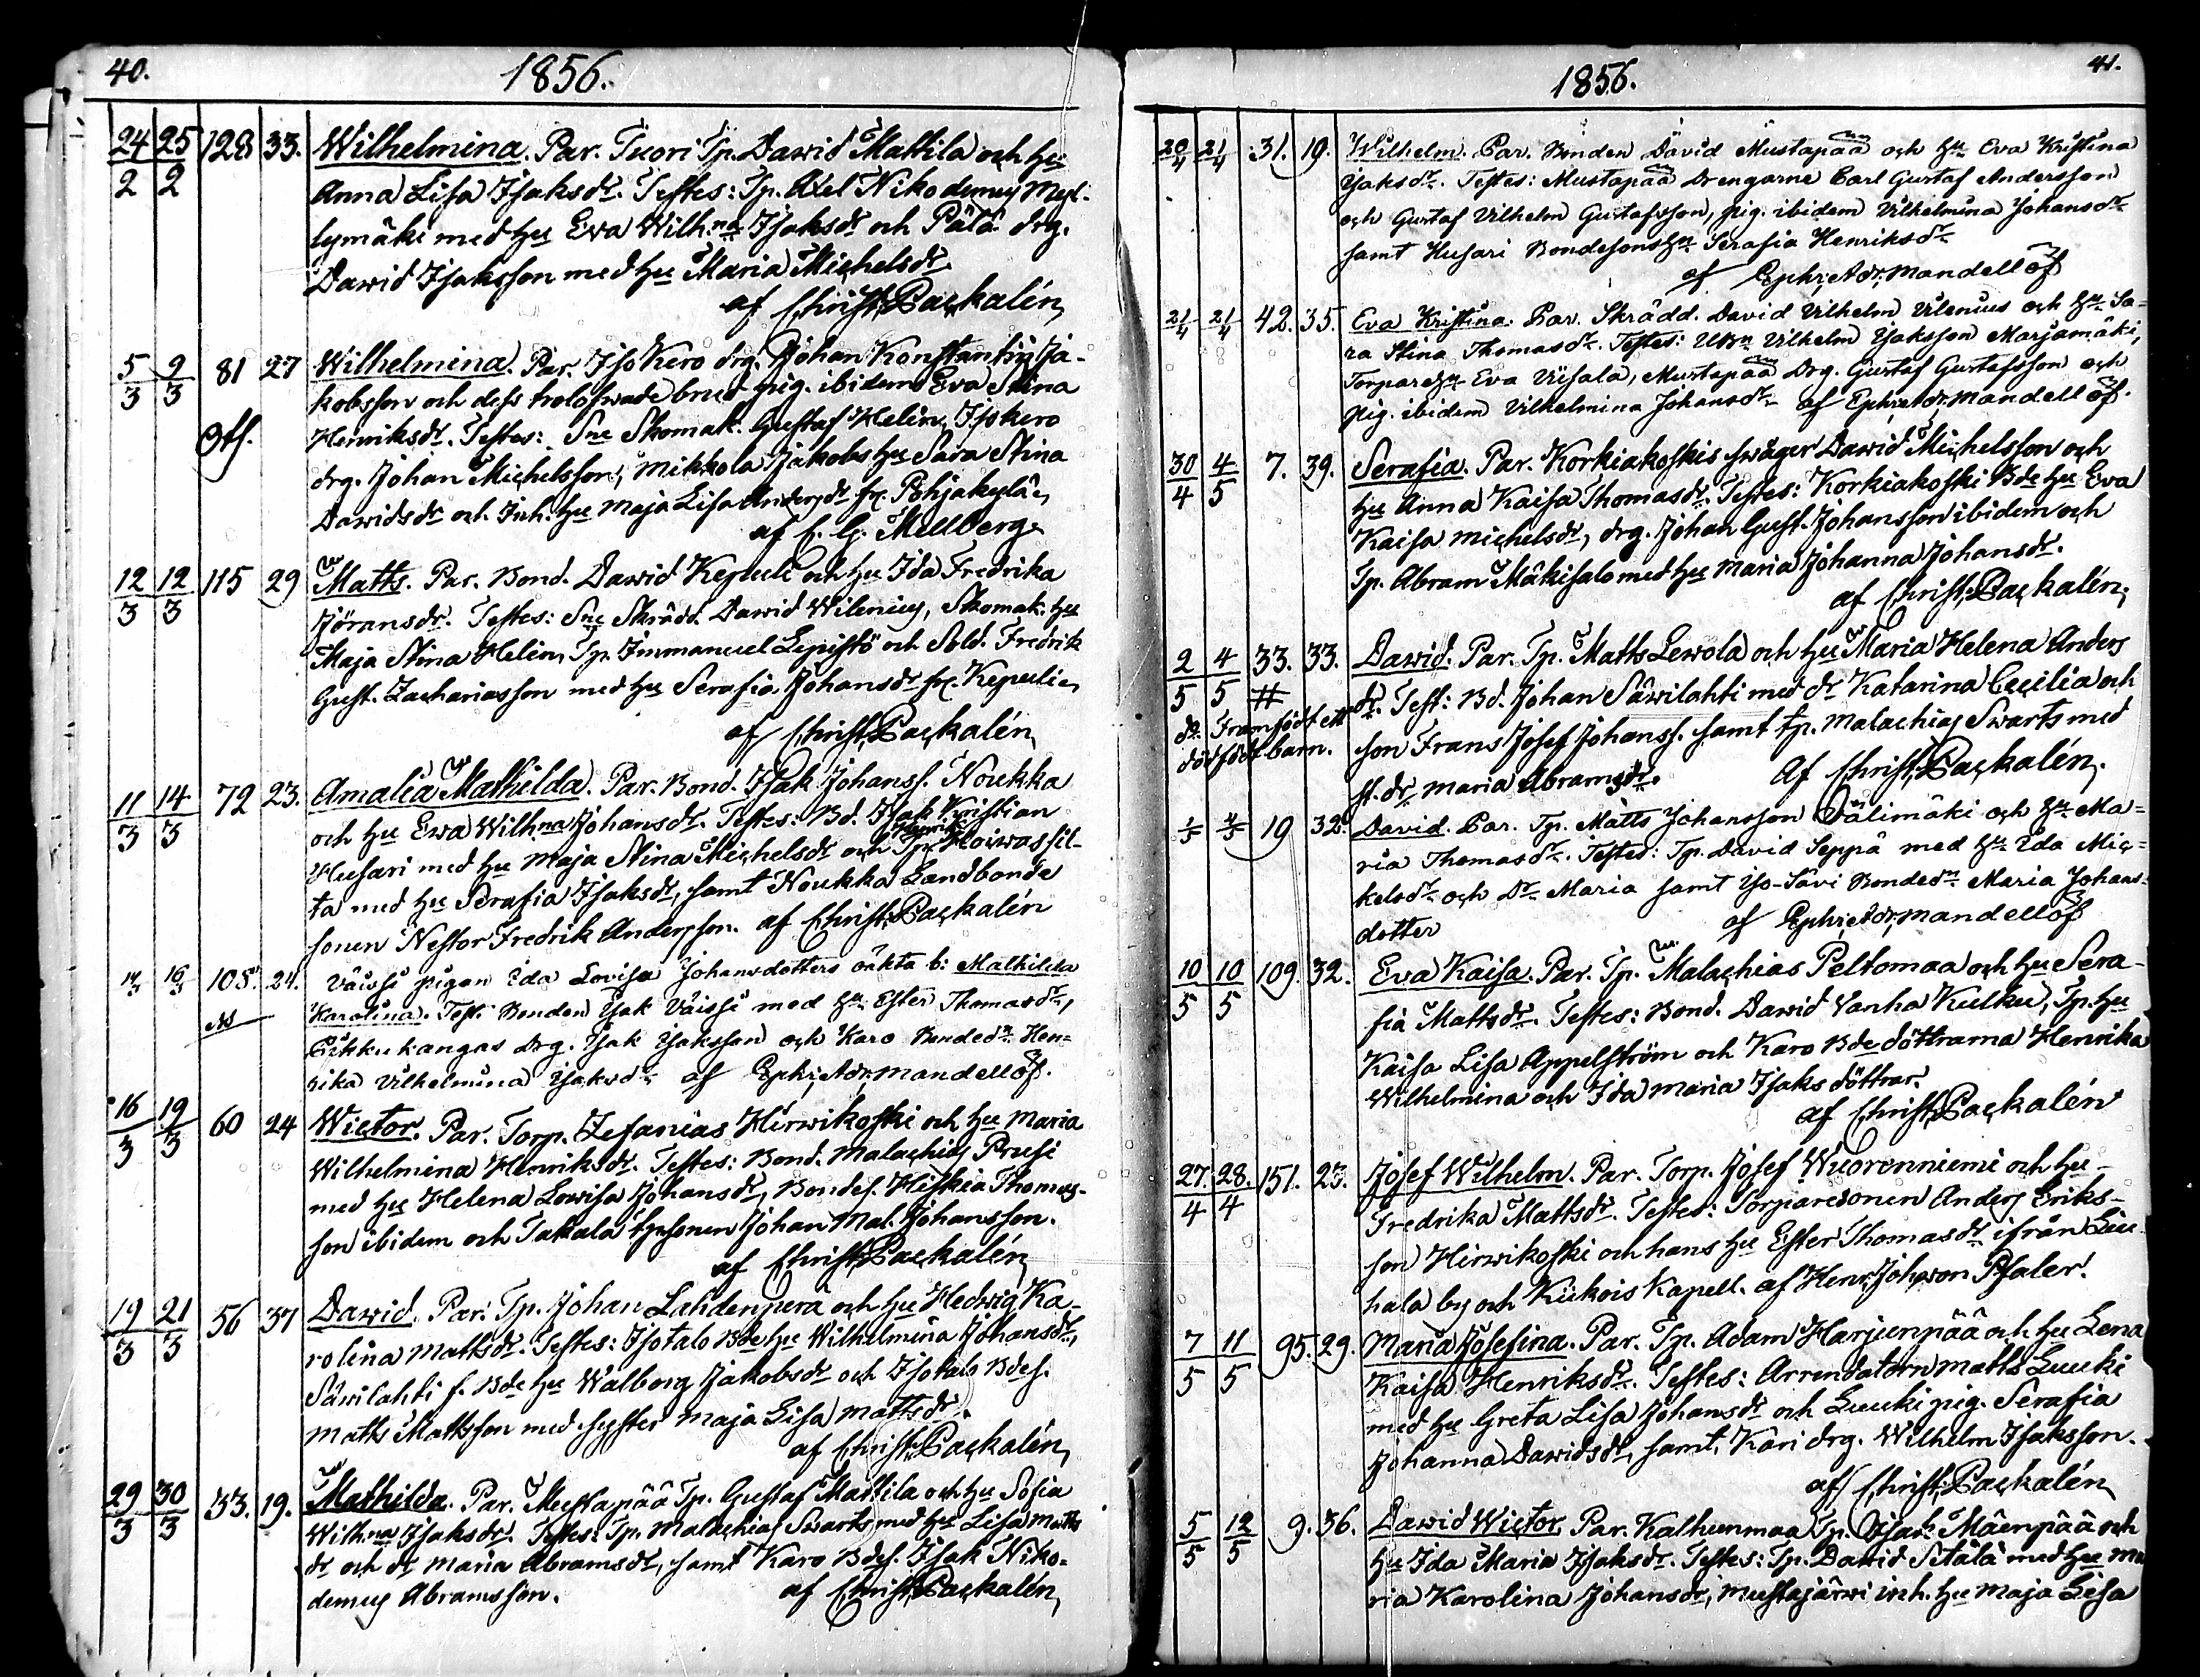 40. 1856.
24/2 25/2 128 33. Wilhelmina. Par. Tuori Tp. Dawid Mattila och Hu
Anna Lisa Isaksdr. Testes: Tp. Axel Nikodemus Myl-
lymäki med Hu Eva Wilh:na Isaksdr och Pälä drg.
Dawid Isaksson med Hu Maria Michelsdr
af Christ. Packalén,
5/3 9/3 81 27 Wilhelmina. Par. Iso Kero drg. Johan Konstantin Ja-
kobsson och dess trolofwade brud pig. ibidem Eva Stina
Henriksdr. Testes: Sne Skomak. Gustaf Helén, Isokero
drg. Johan Michelsson, Mikkola Jakobs Hu Sara Stina
Dawidsdr och Inh. Hu Maja Lisa Andersdr fr. Pohjakylä,
af C. G. Mellberg
12/3 12/3 115 29 Matts. Par. Bond. Dawid Kepuli och Hu Ida Fredrika
Jöransdr. Testes: Sne Skrädd. Dawid Wilenius, Skomak. Hu
Maja Stina Helin, Tp. Immanuel Lepistö och Sold. Fredrik
Gust. Zachariasson med Hu Serafia Johansdr fr. Kepuli,
af Christ. Packalén,
11/3 14/3 72 23. Amalia Mathilda. Par. Bond. Isak Johanss. Noukka
och Hu Ewa Wilhna Johansdr. Testes: Bd. Isak Kristian
Husari med Hu Maja Stina Michelsdr och Tp. Henrik Koiwassil-
ta med Hu Serafia Isaksdr, samt Noukka Landbonde
sonen Nestor Fredrik Andersson. af Christ. Packalén
14/3 16/3 108. 24. Väissi pigan Ida Lovisa Johansdotters oäkta b: Mathilda
Karolina. Test. Bonden Isak Väissi med Hu Ester Thomasdr,
Pikkukangas Drg. Isak Isaksson och Karo Bondedr Hen-
rika Vilhelmina Isaksdr. af Ephr. Adr. Mandellöf.
16/3 19/3 60 24 Wictor. Par. Torp. Zefanias Hirwikoski och Hu Maria
Wilhelmina Henriksdr. Testes: Bond. Malachias Prusi
med Hu Helena Lowisa Johansdr, Bondes. Hiskia Thomas-
son ibidem och Takala tpsonen Johan Mal. Johansson.
af Christ. Packalén,
19/3 21/3 56 37 Dawid. Par. Tp. Johan Lahdenperä och Hu Hedwig Ka-
rolina Mattsdr. Testes: Isotalo Bde Hu Wilhelmina Johansdr,
Säwilahti f. Bde Hu Walborg Jakobsdr och Isotalo Bdes.
Matts Mattsson med syster Maja Lisa Mattsdr.
af Christ. Packalén,
29/3 30/3 33. 19. Mathilda. Par. Mustapää Tp. Gustaf Mattila och Hu Sofia
Wilh:na Isaksdr. Testes: Tp. Malachias Swarts med Hu Lisa Matts
dr och dr Maria Abramsdr, samt Karo Bdes. Isak Niko-
demus Abramsson. af Christ. Packalén,
1856. 41.
20/4 21/4 31. 19. Wilhelm. Par. Bonden David Mustapää och Hu Eva Kristina
Isaksdr. Testes: Mustapää Drengarne Carl Gustaf Andersson
och Gustaf Vilhelm Gustafsson, pig. ibidem Vilhelmina Johansdr
samt Husari Bondesons Hu Serafia Henriksdr
af Ephr. Adr. Mandellöf
21/4 21/4 42. 35. Eva Kristina. Par. Skrädd. David Vilhelm Vilenius och Hu Sa-
ra Stina Thomasdr. Testes: Vilhelm Isaksson Marjamäki,
Torpare Hu Eva Viisala, Mustapää Drg. Gustaf Gustafsson och
pig. ibidem Vilhelmina Johansdr af Ephr. Adr. Mandellöf.
30/4 4/5 7. 39. Serafia. Par. Korkiakoskis swåger Dawid Michelsson och
Hu Anna Kaisa Thomasdr. Testes: Korkiakoski Bde Hu Eva
Kaisa Michelsdr, drg. Johan Gust. Johansson ibidem och
Tp. Abram Mäkisalo med Hu Maria Johanna Johansdr.
af Christ. Packalén,
2/5 4/5 33. 33. Dawid. Par. Tp. Matts Lewola och Hu Maria Helena Anders
dr. Test: Bd. Johan Säwilahti med dr Katarina Cecilia och
son Frans Josef Johanss. samt tp. Malachias Swarts med
st. dr. Maria Abramsdr. Af Christ. Packalén.
# do. Framfödt ett
dödfödt barn.
2/5 4/5 19 32. David. Par. Tp. Matts Johansson Välimäki och Hu Ma-
ria Thomasdr. Testes: Tp. David Seppä med Hu Ida Mic-
kelsdr och Dr Maria samt Yo-Sävi Bondedr Maria Johans-
dotter af Ephr. Adr. Mandellöf
10/5 10/5 109. 32. Eva Kaisa. Par. Tp. Malachias Peltomaa och Hu Sera-
fia Mattsdr. Testes: Bond. Dawid Vanha Kulku, Tp. Hu
Kaisa Lisa Appelström och Karo Bde döttrarna Henrika
Wilhelmina och Ida Maria Isaks döttrar.
af Christ. Packalén
27./4 28./4 151. 23. Josef Wilhelm. Par. Torp. Josef Wuorenniemi och Hu
Fredrika Mattsdr. Testes: Torparesonen Anders Eriks-
son Hirwikoski och hans Hu Ester Thomasdr ifrån Liu-
hala by och Kiikois Kapell. af Henr. Joh. von Pfaler.
7/5 11/5 95. 29. Maria Josefina. Par. Tp. Adam Harjunpää och Hu Lena
Kaisa Henriksdr. Testes: Arrendatorn Matts Luuki
med Hu Greta Lisa Johansdr och Luuki pig. Serafia
Johanna Dawidsdr, samt Kari drg. Wilhelm Isaksson.
af Christ. Packalén,
5/5 12/5 9. 36. Dawid Wictor. Par. Kalhunmaa Tp. Isak Mäenpää och
Hu Ida Maria Isaksdr. Testes: Tp. Dawid Setälä med Hu Ma
ria Karolina Johansdr, Mustajärwi inh. Hu Maja Lisa